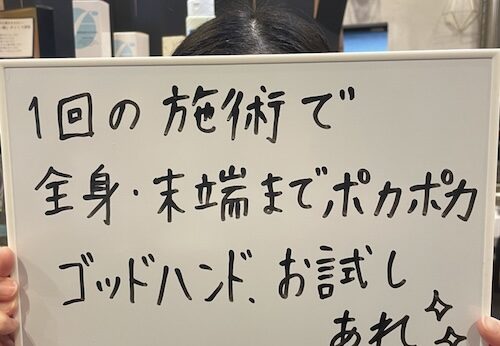 1回の施術で
全身・末端までポカポカ
ゴッドハンド、お試し
あれ